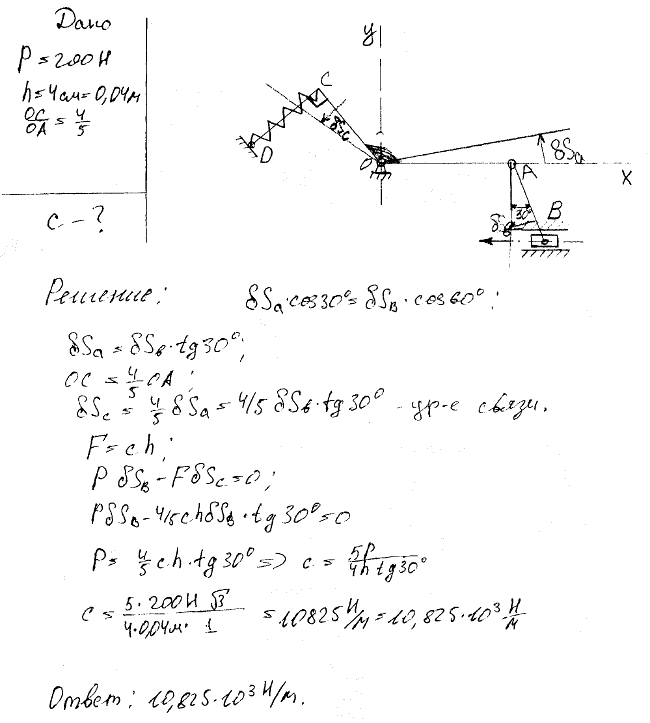 Дано
P = 200 Н
h = 4 см = 0,04 м
OC/OA = 4/5
c - ?
y
C
δSc
D
O
δSa
A
x
30°
B
δSв
Решение:
δSa·cos30° = δSв·cos60°;
δSa = δSв·tg30°;
OC = 4/5 OA;
δSc = 4/5 δSa = 4/5 δSв·tg30° - ур-е связи.
F = ch;
P δSв - FδSc = 0;
PδSв - 4/5 chδSв·tg30° = 0
P = 4/5 c·h·tg30° => c = 5P/4h tg30°
c = 5·200Н √3/4·0,04м· 1 = 10825 Н/м = 10,825·10³ Н/м
Ответ: 10,825·10³ Н/м.